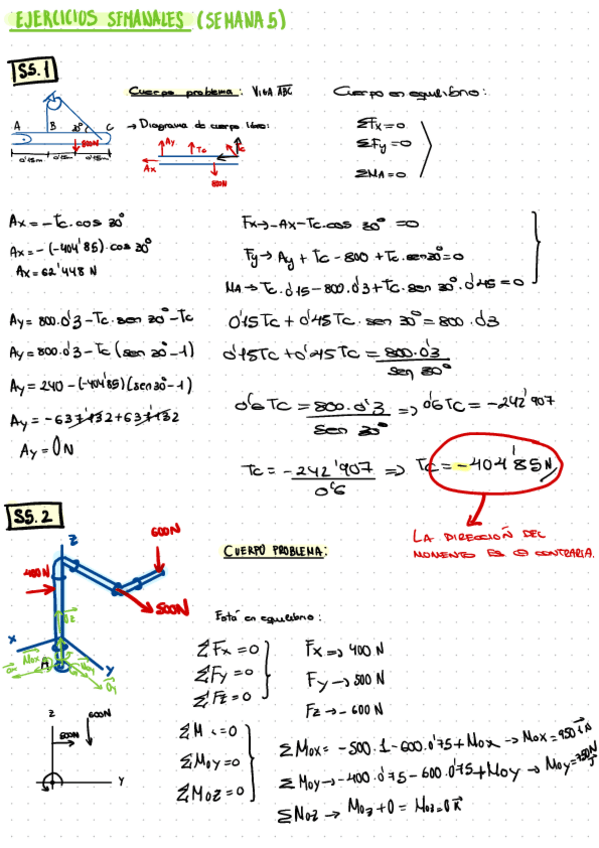 EJERCICIOS SEMANALES (SEMANA 5)
S5.1
Cuerpo problema: VIGA ABC
Cuerpo en equilibrio:
→ Diagrama de cuerpo libre:
ΣFx=0
ΣFy=0
ΣMA=0
A B 30° C
800N
0'15m 0'15m 0'15m
Ay Tc Tc
Ax
800N
Ax = -Tc.cos 30°
Ax = -(-404'85).cos 30°
Ax = 62'448 N
Fx→ -Ax-Tc.cos 30° =0
Fy→ Ay + Tc - 800 + Tc.sen 30°=0
MA → Tc.0'15-800.0'3+Tc.sen 30°.0'45 = 0
Ay = 800.0'3-Tc.sen 30°-Tc
Ay = 800.0'3-Tc(sen 30°-1)
Ay = 240-(-404'85)(sen 30°-1)
Ay = -637'132+637'132
Ay = 0N
0'15Tc + 0'45Tc.sen 30° = 800.03
0'15Tc + 0'45Tc = 800.0'3 / sen 30°
0'6 Tc = 800.0'3 / sen 30° => 0'6 Tc = -242'907
Tc = -242'907 / 0'6 => Tc = -404'85 N
LA DIRECCIÓN DEL
MOMENTO ES ⊖ CONTRARIA.
S5.2
CUERPO PROBLEMA:
Z
600N
400N
500N
X
Mox
A
Y
Está en equilibrio:
ΣFx = 0
ΣFy = 0
ΣFz = 0
Fx => 400 N
Fy → 500 N
Fz → - 600 N
Z
500N
600N
Y
ΣM =0
ΣMoy =0
ΣMoz = 0
ΣMox = -500.1-600.0'75+Mox → Mox = 950 i N
ΣMoy → -400.0'75-600.0'75+Moy → Moy = 750N j
ΣMoz → Moz + 0 = Moz = 0 k